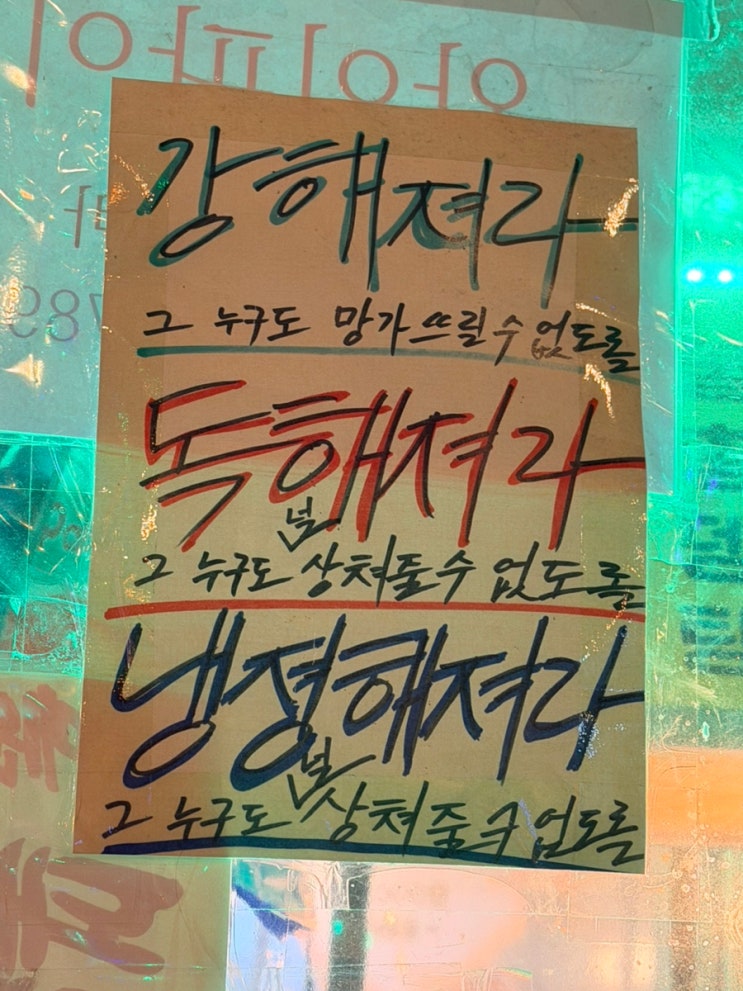 강해져라
그 누구도 망가뜨릴 수 없도록
독해져라
그 누구도 널 상쳐줄 수 없도록
냉정해져라
그 누구도 널 상쳐줄 수 없도록